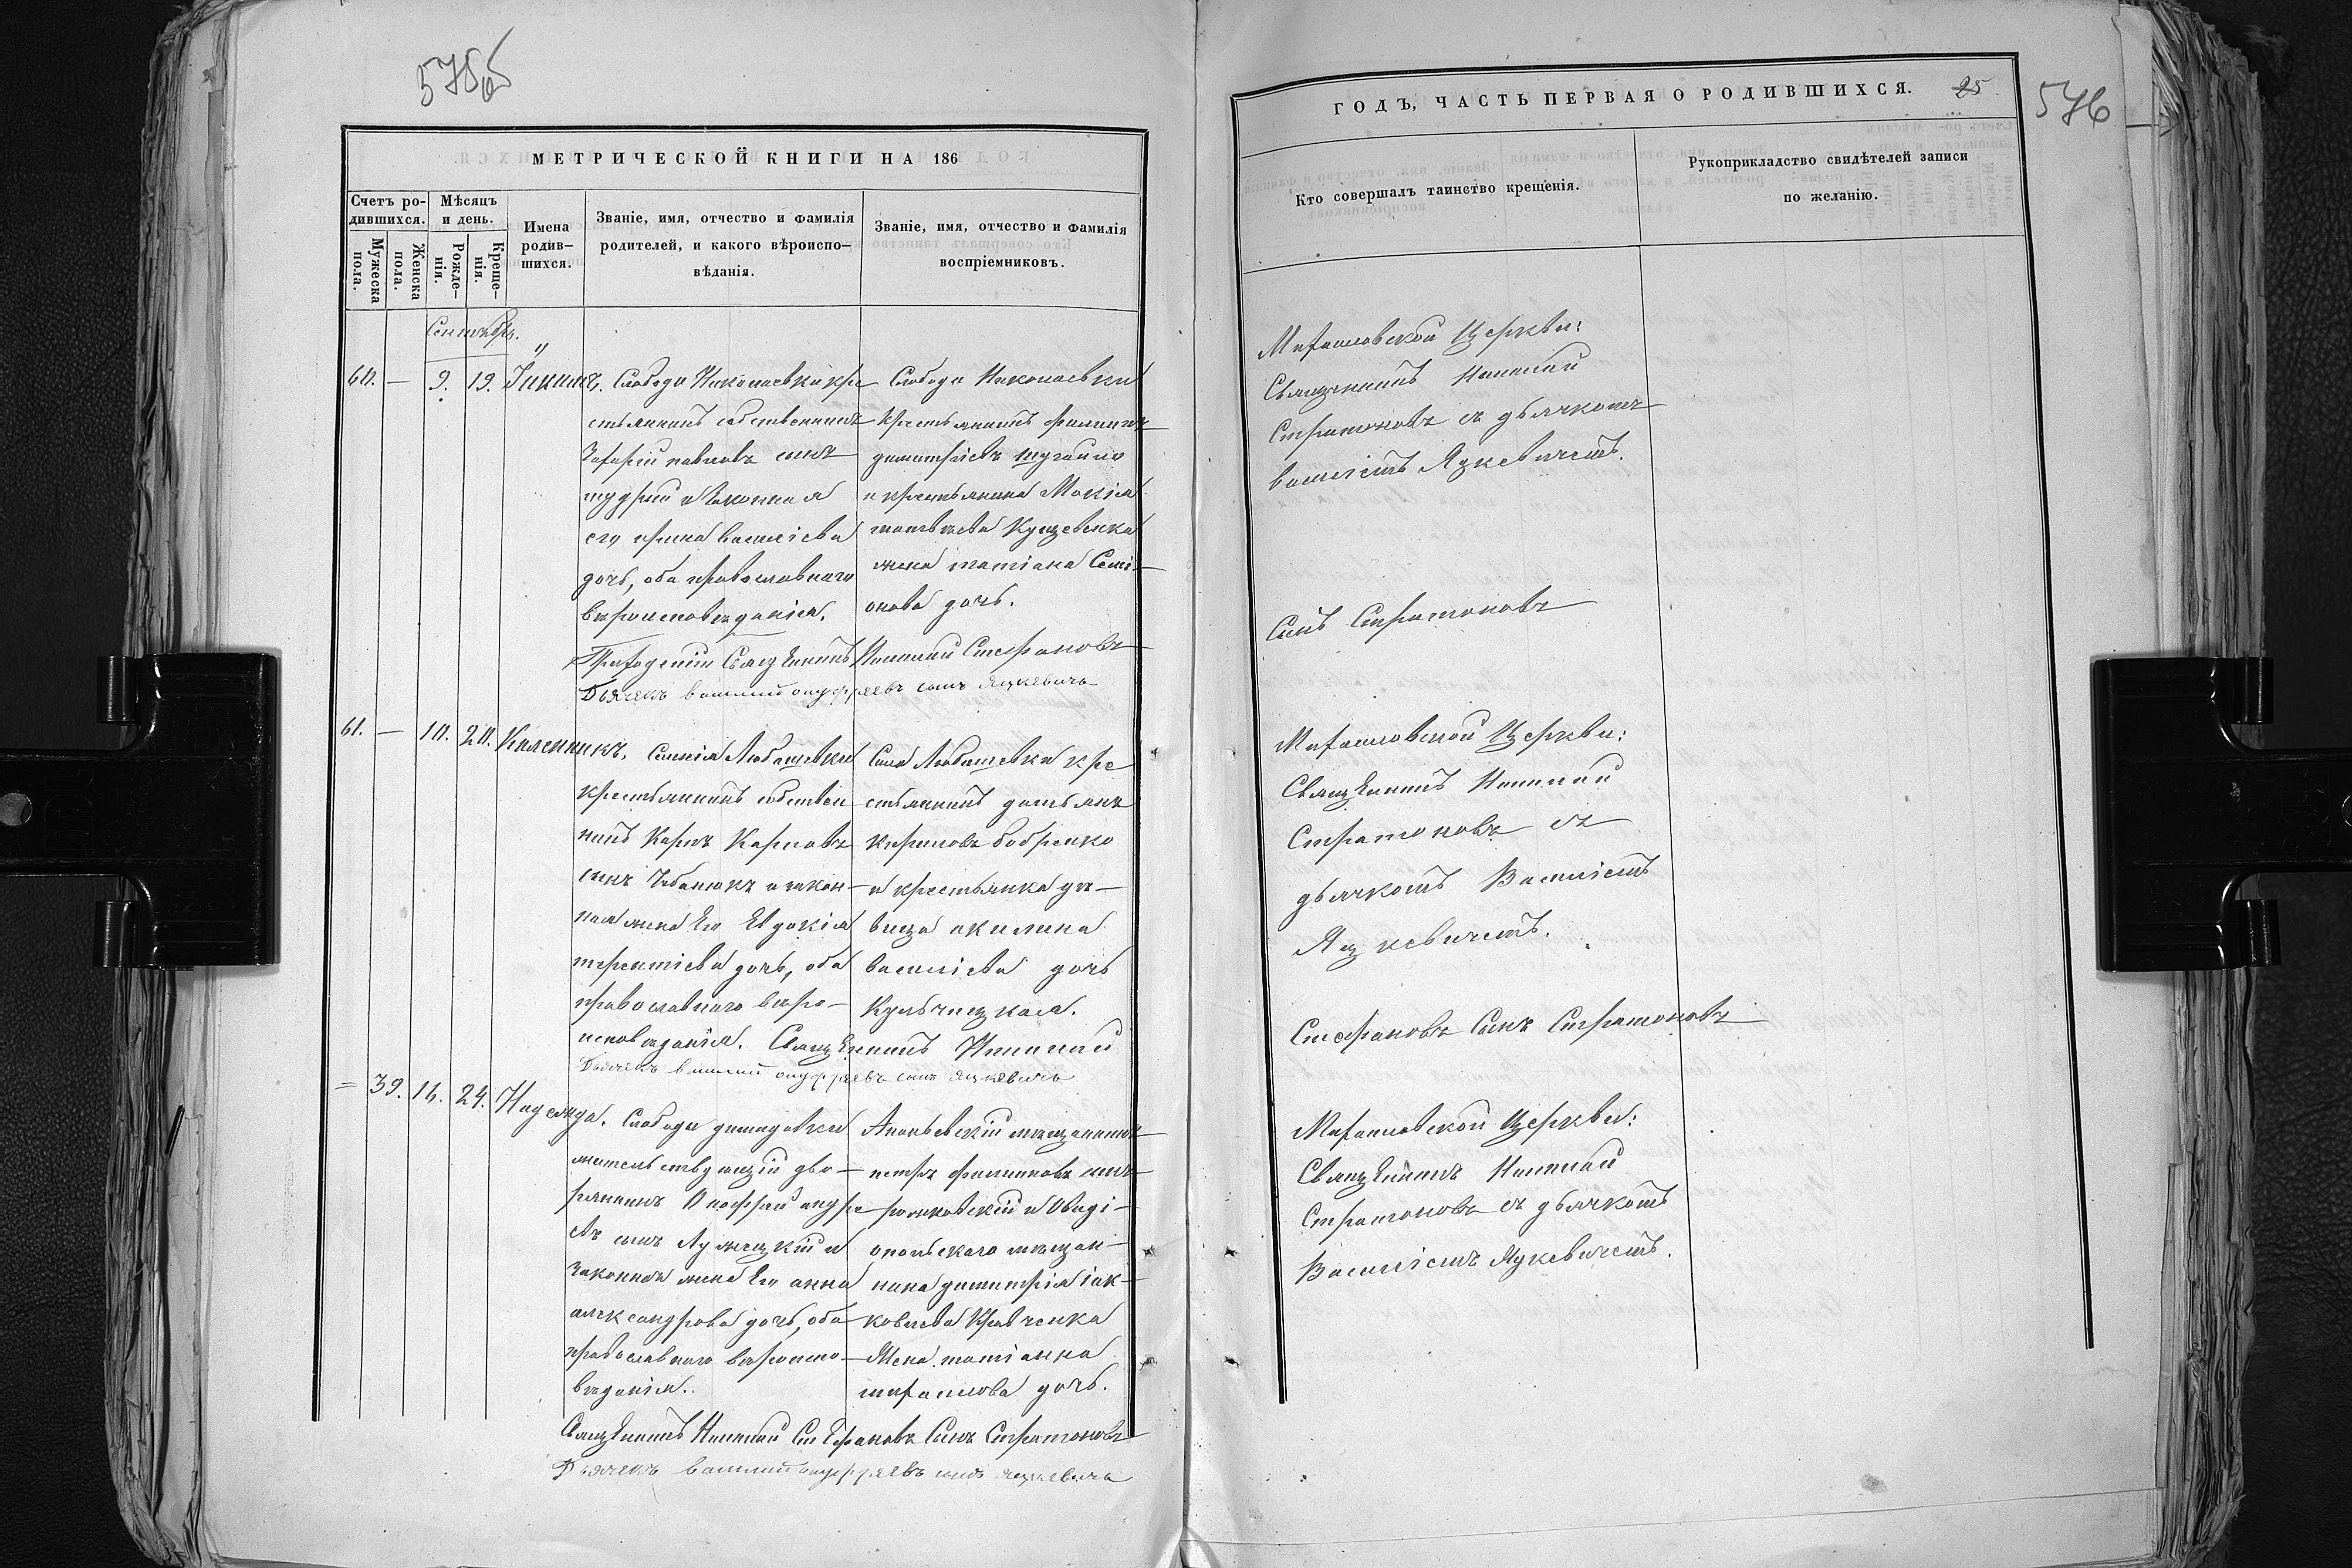 575об
МЕТРИЧЕСКОЙ КНИГИ НА 186
Счетъ ро-
дившихся.
Мужеска
пола.
Женска
пола.
Мѣсяцъ
и день.
Рожде-
нія.
Креще-
нія.
Имена
родив-
шихся.
Званіе, имя, отчество и фамилія
родителей, и какого вѣроиспо-
вѣданія.
Званіе, имя, отчество и фамилія
воспріемниковъ.
Сентябрь.
60. — 9. 19.
Слободы Николаевки кре
стьянинъ собственникъ
Захарій павловъ сынъ
и законная
его ирина василіева
дочь, оба православнаго
вѣроисповѣданія.
Слободы Николаевки
Крестьянинъ филиппъ
димитріевъ
и крестьянина Мокія
матвѣева Куцевенка
жена татіана Семі-
онова дочь.
Приходскій Священникъ Николай Стефановъ
Дьячекъ василий онуфріевъ сынъ Яцкевичъ
61. — 10. 20. Каленникъ.
Селенія Любашевки
крестьянинъ собствен
никъ Карпъ Карповъ
сынъ Чебанюкъ и закон-
ная жена Его Евдокія
терентіева дочь, оба
православнаго вѣро-
исповѣданія.
Села Любашевки кре
стьянинъ демьянъ
Кириловъ бобренко
и крестьянка дѣ-
вица акилина
василіева дочь
Кульчицкая.
Священникъ Николай
Дьячекъ василий онуфріевъ сынъ Яцкевичъ
= 39. 16. 24. Надежда.
Слободы демидовки
жительствующій дво-
рянинъ Онофрій андре
евъ сынъ Лужецкій и
Законная жена Его анна
александрова дочь, оба
православнаго вѣроиспо-
вѣданія.
Ананьевскій мѣщанинъ
петръ филиповъ сынъ
и Овиді-
опольскаго мѣщан-
нина димитрія іак-
ковлева Кравченка
Жена татіанна
михаилова дочь.
Священникъ Николай Стефановъ Сынъ Стратоновъ
Дьячекъ василий онуфріевъ сынъ Яцкевичъ
ГОДЪ, ЧАСТЬ ПЕРВАЯ О РОДИВШИХСЯ.
25
576
Кто совершалъ таинство крещенія.
Рукоприкладство свидѣтелей записи
по желанію.
Михаиловской Церкви:
Священникъ Николай
Стратоновъ съ дьячкомъ
василіемъ Яцкевичемъ.
Сынъ Стратоновъ
Михаиловской Церкви:
Священникъ Николай
Стратоновъ съ
дьячкомъ Василіемъ
Яцкевичемъ.
Стефановъ Сынъ Стратоновъ
Михаиловской Церкви:
Священникъ Николай
Стратоновъ съ дьячкомъ
Василіемъ Яцкевичемъ.